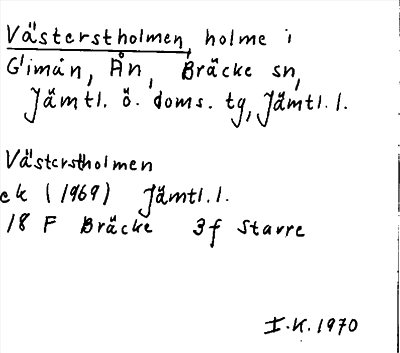 Västerstholmen, holme i
Gimån, Ån, Bräcke sn,
Jämtl. ö. doms. tg, Jämtl. l.
Västerstholmen
ek (1969) Jämtl. l.
18 F Bräcke 3f Stavre
I.K. 1970